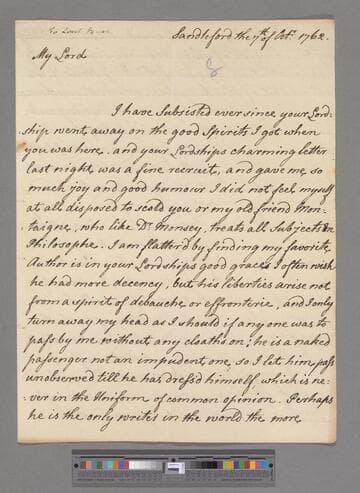 To Lord
Sandleford the 7th of Octr. 1762
My Lord
8
I have Subsisted ever since your Lord-
ship went away on the good Spirits I got when
you was here. and your Lordships charming letter
last night was a fine recruit, and gave me so
much joy and good humour I did not feel myself
at all disposed to scold you or my old friend Mon-
taigne, who like Dr. Monsey, treats all Subjects en
Philosophe. I am flatter'd by finding my favorite
Author is in your Lordships good graces I often wish
he had more decency, but his liberties arise not
from a spirit of debauche or effronterie, and I only
turn away my head as I should if any one was to
pass by me without any cloaths on; he is a naked
passenger not an impudent one, so I let him pass
unobserved till he has dress'd himself, which is ne-
ver in the Uniform of common opinion. Perhaps
he is the only writer in the world the more